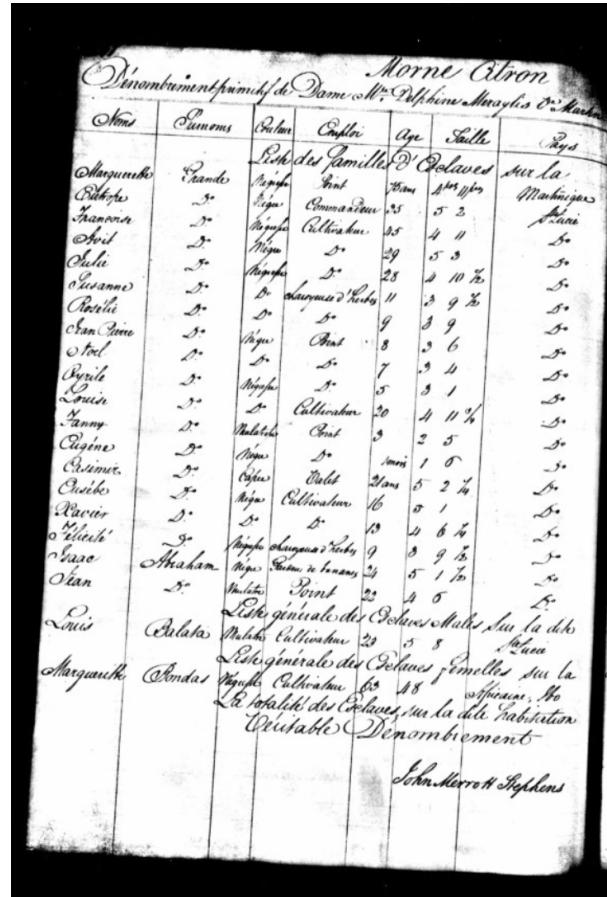 Morne Citron
Dénombrement primitif de Dame Delphine Meraylis Martin
Noms Surnoms Couleur Emploi Age Taille Pays
Liste des familles D'Esclaves sur la
Marguerithe Grande Négresse Point 75 ans 4 11 Martinique
Eutrope Do Nègre Commandeur 35 5 2 Ste Lucie
Francoise Do Négresse Cultivateur 45 4 11 Do
Avit Do Nègre Do 29 5 3 Do
Julie Do Négresse Do 28 4 10 ½ Do
Susanne Do Do d'herbes 11 3 9 ½ Do
Rosélie Do Do Do 9 3 9 Do
Jean Pierre Do Nègre Point 8 3 6 Do
Noel Do Do Do 7 3 4 Do
Cyrile Do Négresse Do 5 3 1 Do
Louise Do Do Cultivateur 20 4 11 Do
Fanny Do Mulatre Point 3 2 5 Do
Eugéne Do Nègre Do mois 1 6 Do
Casimir Do Capre Valet 21 ans 5 2 Do
Eusébe Do Nègre Cultivateur 16 5 1 Do
Xavier Do Do Do 13 4 6 Do
Félicité Do Négresse d'herbes 9 3 9 ½ Do
Isaac Abraham Nègre de bananes 24 5 1 ½ Do
Jean Do Mulatre Point 22 4 6 Do
Liste générale des Esclaves Males Sur la dite
Louis Balata Mulatre Cultivateur 23 5 8 Ste Lucie
Liste générale des Esclaves femelles sur la
Marguerithe Négresse Cultivateur 63 4 8 Africaine,
La totalité des Esclaves, sur la dite habitation
Véritable Dénombrement
John Merrott Stephens